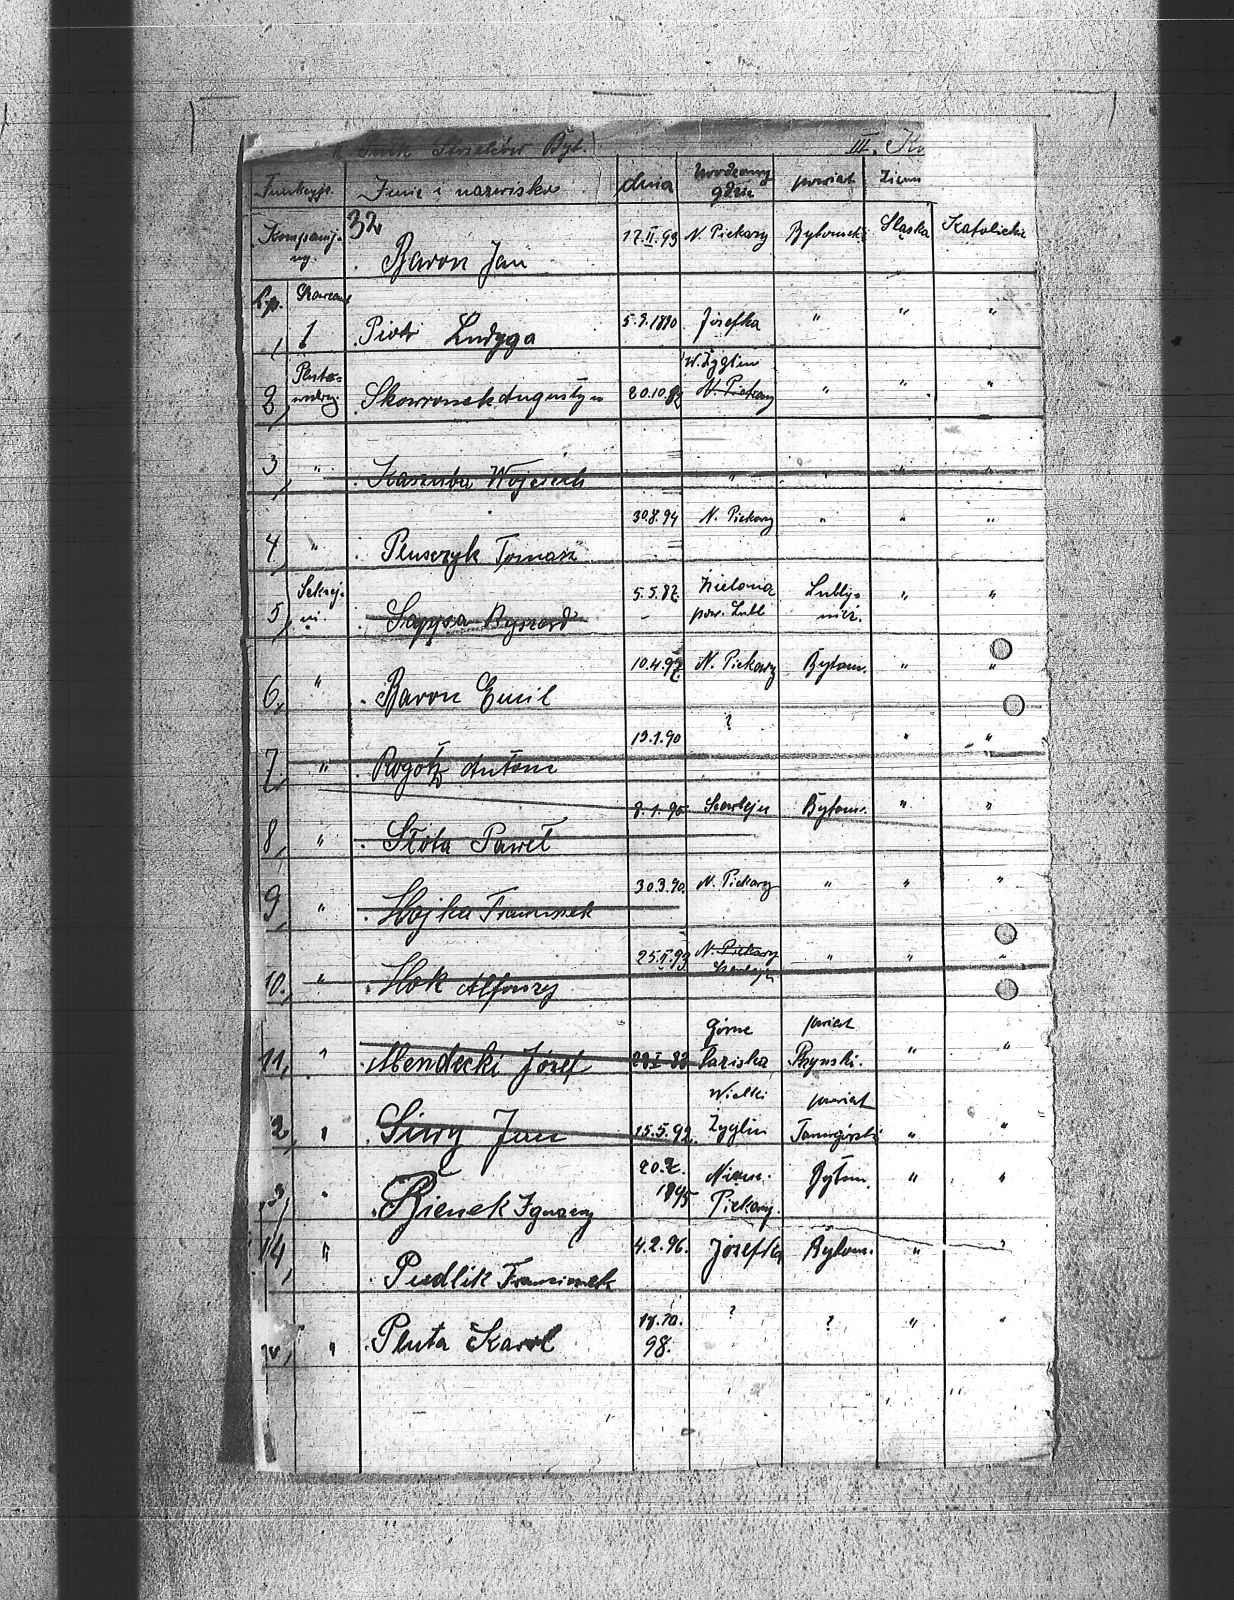 Pułk Strzelców Byt. III. K
Funkcyje. Imie i nazwisko dnia Urodzony gdzie powiat Ziem
32
Kompanij-ny. Baron Jan 17.II.93 N. Piekary Bytomski Śląska Katolickie
Lp.
1, Piotr Ludyga 5.9.1890 Józefka " " "
W. Żyglin
2, Pluto-nowy. Skowronek Augustyn 20.10.87 N. Piekary " " "
3, " Kaszuba Wojciech " " " "
4, " Pluszczyk Tomasz 30.8.94 N. Piekary " " "
5, Sekcyj-ni. Ryszard 5.5.87. Zielona pow. Lubl Lubly-niec. " "
6, " Baron Emil 10.4.97. N. Piekary Bytom. " "
7, " Rogotz Antoni 13.1.90 ? " "
8, " Słota Paweł 8.1.95 Szarleju Bytom. " "
9, " Hojka Franciszek 30.3.90. N. Piekary " " "
10., " Hok Alfonzy 25.II.93 N. Piekary " " "
11, " Mendecki Józef Górne Łaziska powiat Pszynski. " "
2, " Siwy Jan 15.5.92. Wielki Żyglin powiat Tarnogórski " "
3, " Bienek Ignacy 20.7. 1895 Niem. Piekary. Bytom. " "
14, " Pudlik Franciszek 4.2.96. Józefka Bytom. " "
" Pluta Karol 18.10. 98. ? ? " "